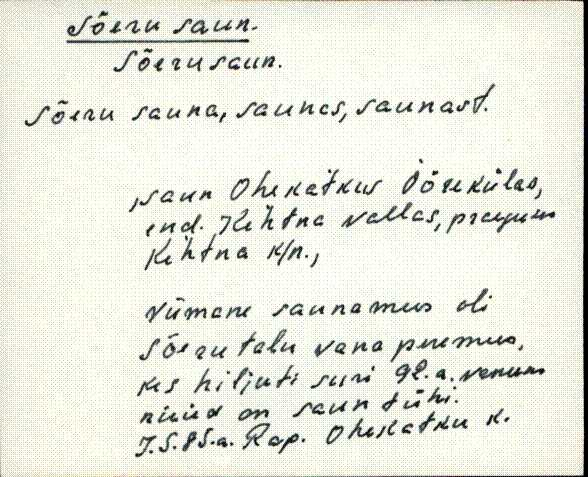 Sõeru saun.
Sõerusaun.
Sõeru sauna, saunas, saunast.
, saun Ohekatkus Jõe külas,
end. Kehtna vallas, praegune
Kehtna k/n.,
Viimane saunamees oli
Sõeru talu vana peremees,
kes hiljuti suri 92. a. vanuses
nüüd on saun tühi.
J.S. 85. a. Rap. Ohekatku k.